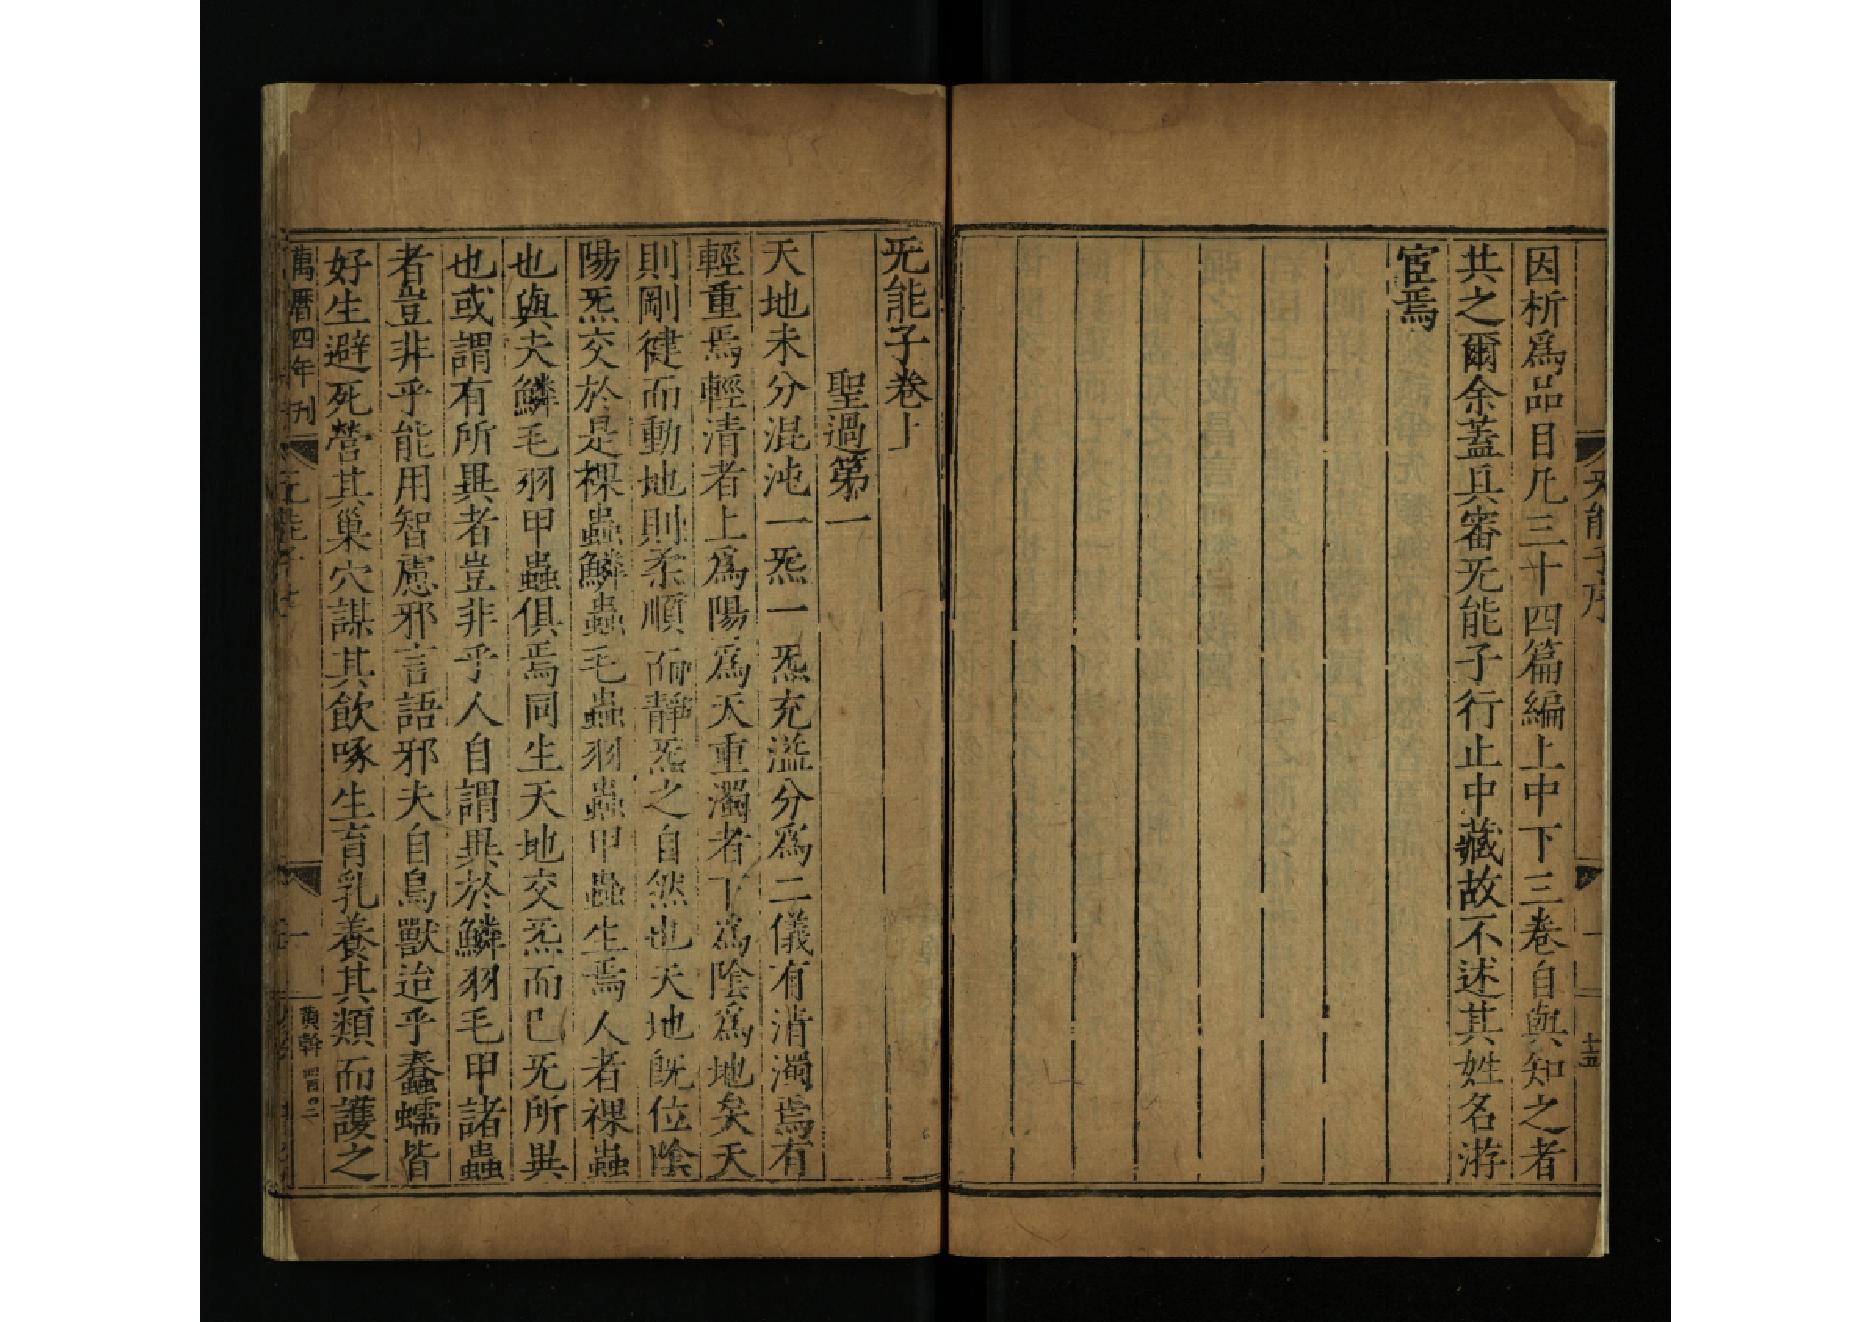 因析爲品目凡三十四篇編上中下三卷自與知之者
共之爾余蓋具審无能子行止中藏故不述其姓名游
宦焉
无能子序
一
无能子卷上
聖過第一
天地未分混沌一炁一炁充溢分爲二儀有清濁焉有
輕重焉輕清者上爲陽爲天重濁者下爲陰爲地矣天
則剛健而動地則柔順而靜炁之自然也天地旣位陰
陽炁交於是裸蟲鱗蟲毛蟲羽蟲甲蟲生焉人者裸蟲
也與夫鱗毛羽甲蟲俱焉同生天地交炁而已无所異
也或謂有所異者豈非乎人自謂異於鱗羽毛甲諸蟲
者豈非乎能用智慮邪言語邪夫自鳥獸迨乎蠢蠕皆
好生避死營其巢穴謀其飲啄生育乳養其類而護之
萬曆四年刊
一